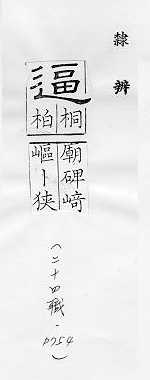 隸辨
逼
桐
柏
廟碑﨑
嶇卜狹
(二十四職．
P754)